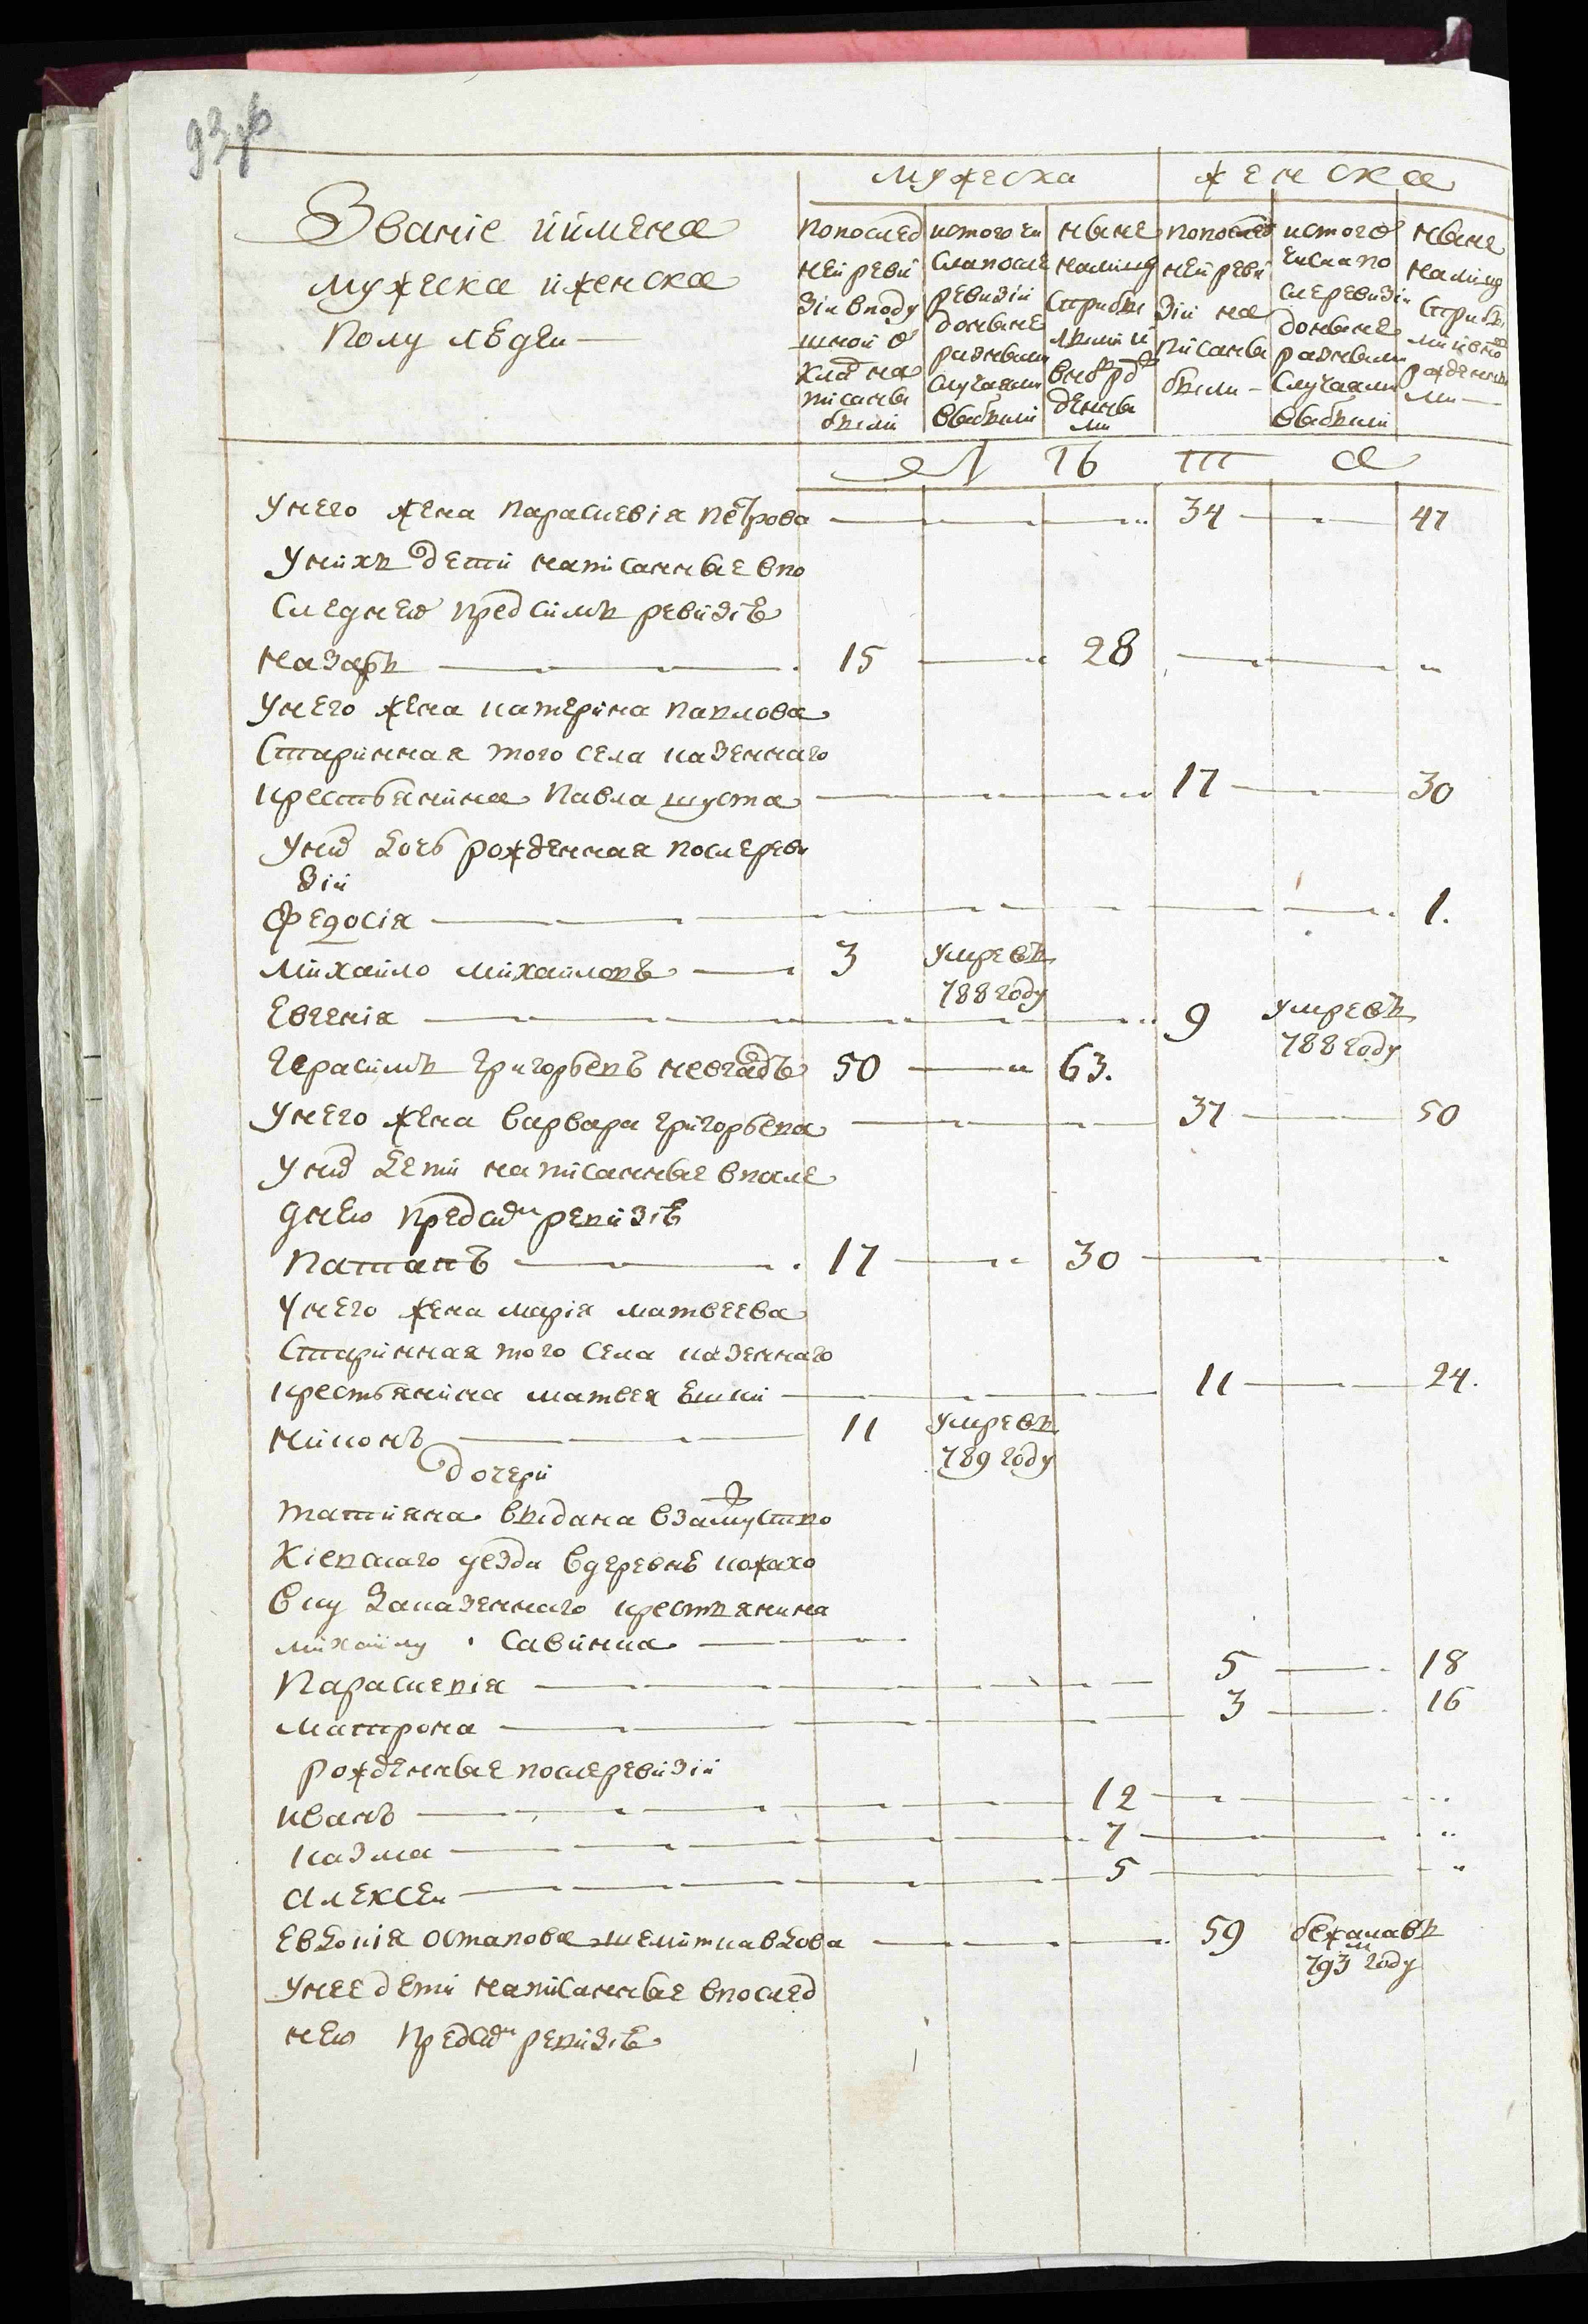 93 об
мужеска женска
Званіе иимена
мужеска иженска
полу людеи
попослед
неи реви
зіи вподу
шной о
клад на
писаны
были
истого чи
сла после
ревизіи
доныне
разными
случаями
выбыли
ныне
налицо
стрибы
лыми и
внов рож
денны
ми
попослед
неи реви
зіи на
писаны
были
истого
числа по
слеревизіи
доныне
разными
случаями
выбыли
ныне
налицо
стрибы
ми ивно
рожденны
ми
Л Ѣ Т А
Унего жена Параскевія Петрова 34 47
Унихъ дети написанные впо
следнею предсимъ ревизіѣ
Назаръ 15 28
Унего жена катерина павлова
Старинная того села казенного
крестьянина Павла шуста 17 30
Уних дочь рожденная послереви
зіи
Федосія 1.
Михайло Михайловъ 3 умре въ
788 году
Евгенія 9 умре въ
788 году
Герасимъ Григорьевъ невгадъ 50 63.
Унего жена варвара григорьева 37 50
Уних дети написанные впосле
днею предсим ревизіѣ
Потапъ 17 30
Унего жена марія матвеева
Старинная того села казенного
крестьянина матвея 11 24.
Никонъ 11 умре въ
789 году
дочери
татияна выдана взамуство
Кіевского уезда вдеревнѣ кожухо
вку заказенного крестьянина
михайлу Савинка
Параскевія 5 18
матрона 3 16
рожденные послеревизіи
иванъ 12
козма 7
Алексеи 5
Евдокія остапова 59 бежала въ
793 м году
Унее дети написанные впослед
нею предсим ревизіѣ